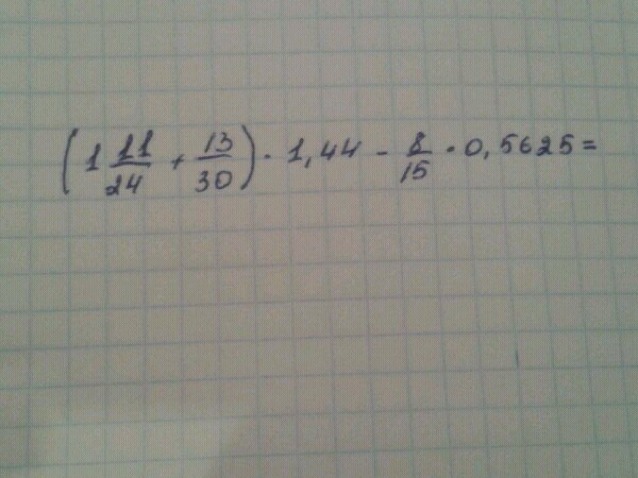 (1 11/24 + 13/30) · 1,44 - 8/15 · 0,5625 =